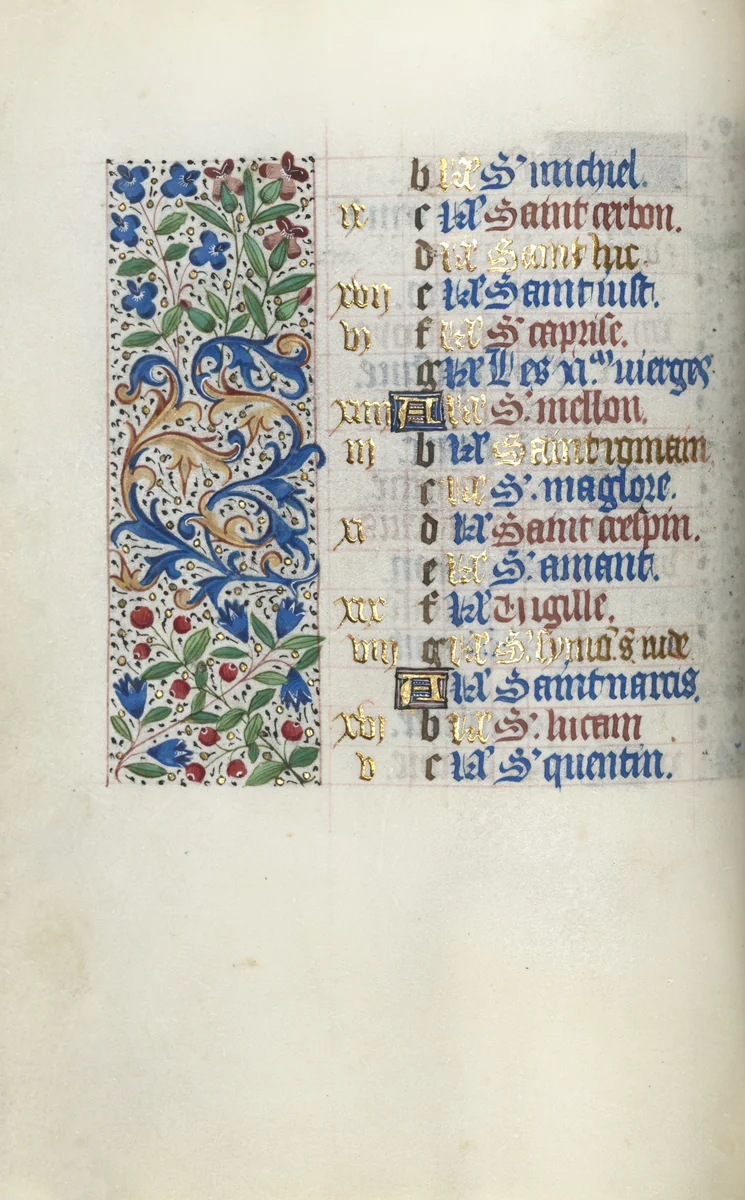 b kł S' michiel.
ix c kł Saint cerbon.
d kł Saint luc.
xvij e kł Saint iust.
vj f kł S' caprise.
g kł Les xi.m vierges
xiiij A kł S'. mellon.
iij b kł Saint romain
c kł S'. maglore.
xi d kł Saint crespin.
e kł S'. amant.
xix f kł Vigille.
viij g kł S'. symon s. iude
A kł Saint narcis.
xvj b kł S'. lucain
v c kł S' quentin.